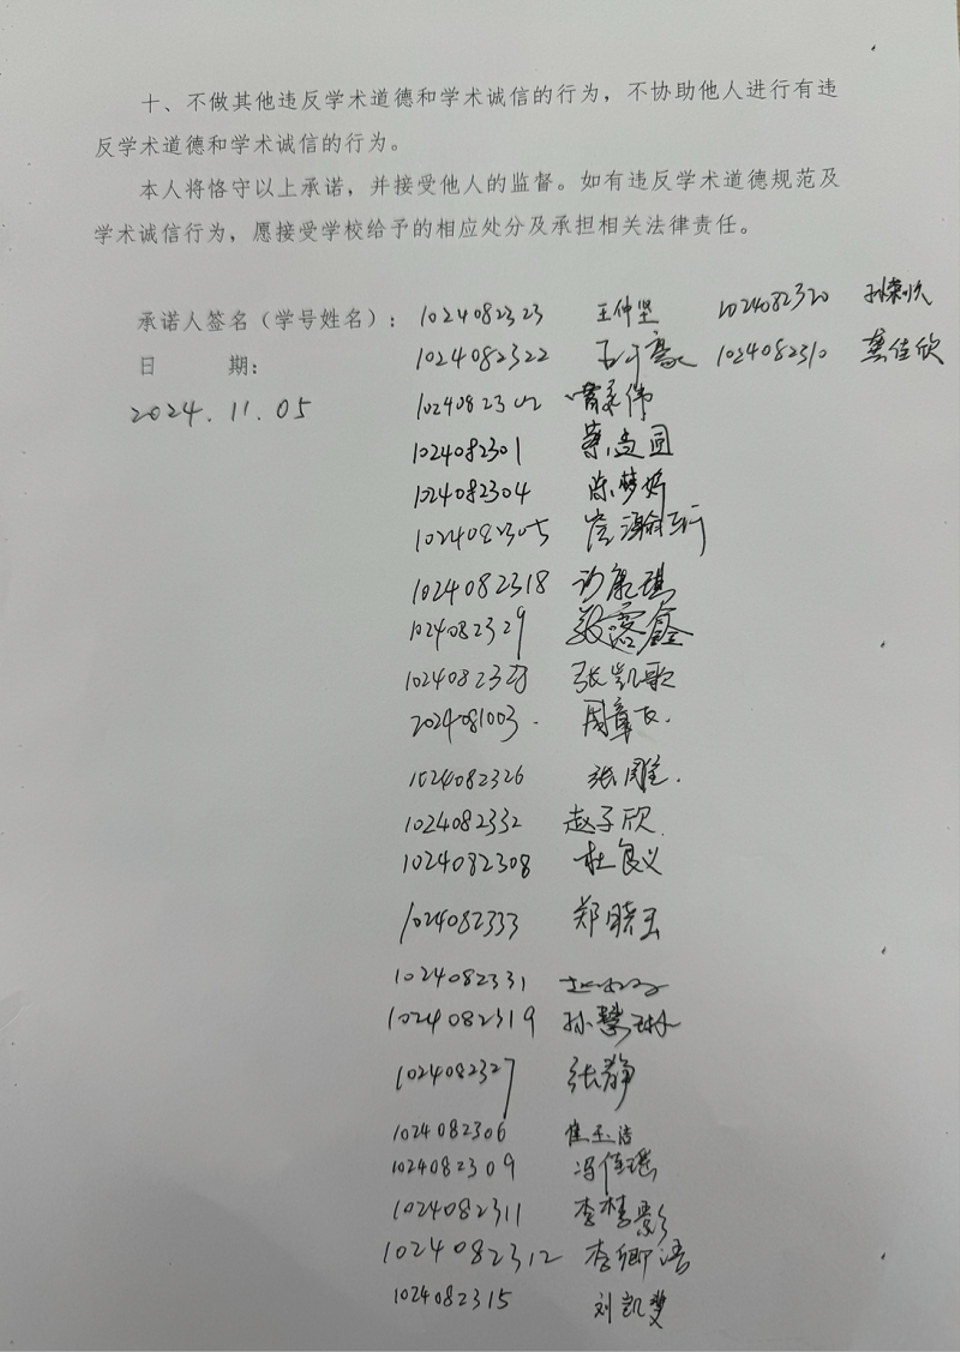 十、不做其他违反学术道德和学术诚信的行为，不协助他人进行有违
反学术道德和学术诚信的行为。
本人将恪守以上承诺，并接受他人的监督。如有违反学术道德规范及
学术诚信行为，愿接受学校给予的相应处分及承担相关法律责任。
承诺人签名（学号姓名）： 1024082323 王仲坚 1024082320
日 期： 1024082322 1024082310 龚佳欣
2024.11.05 1024082302
1024082301
1024082304 陈梦婷
1024082305
1024082318
1024082329
1024082328 张凯歌
2024081003.
1024082326 张雕.
1024082332 赵子欣
1024082308 杜良义
1024082333 郑晓玉
1024082331
1024082319 孙慧琳
1024082327 张静
1024082306 崔玉洁
1024082309 冯佳瑶
1024082311 李梦影
1024082312 李卿语
1024082315 刘凯斐